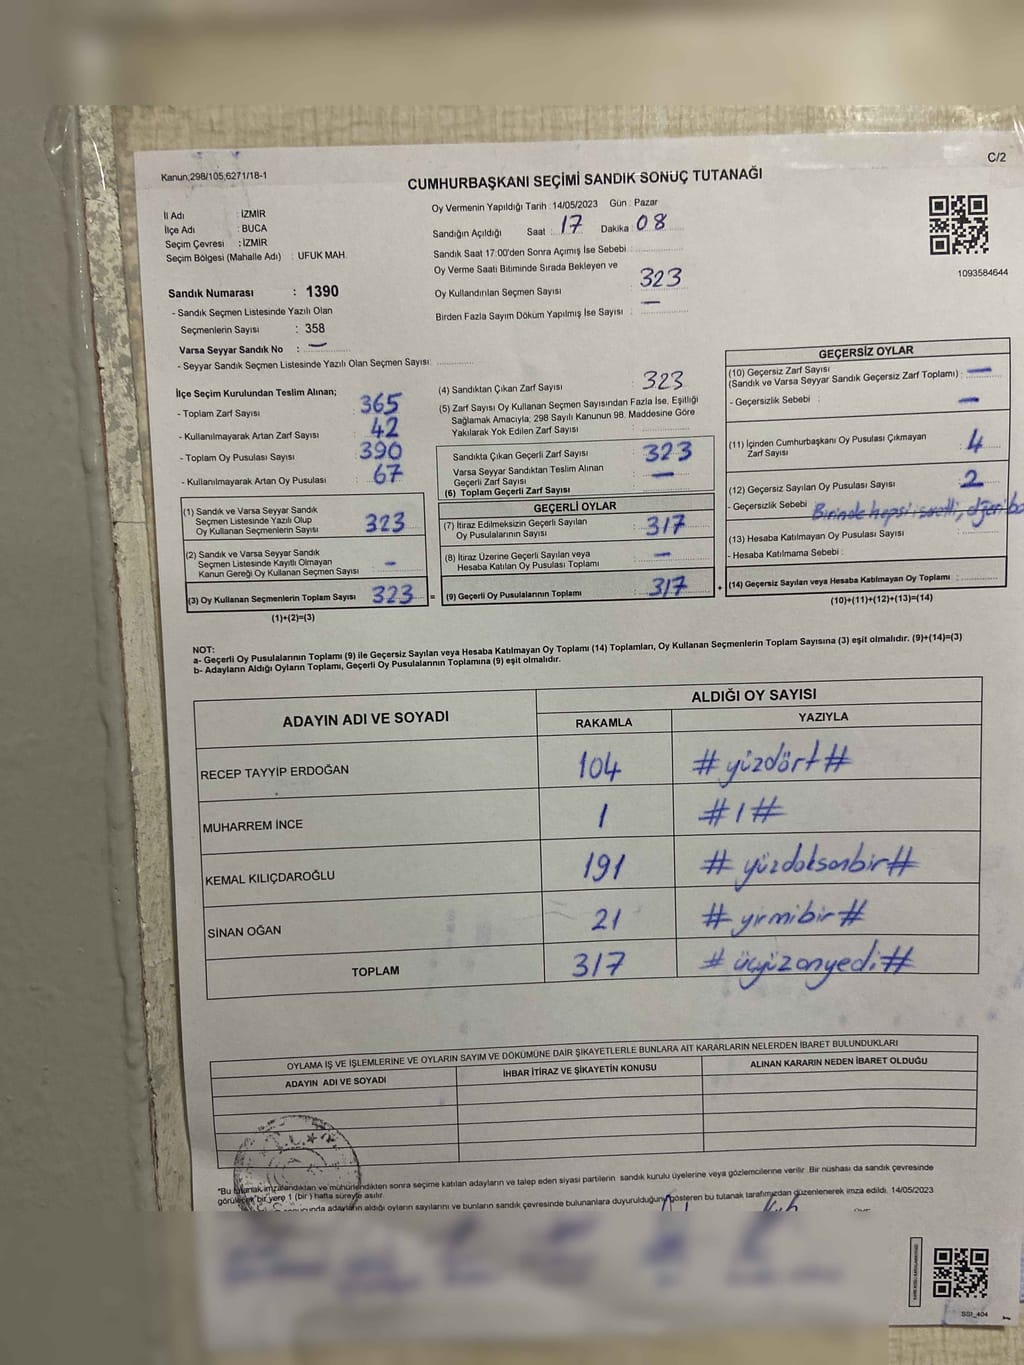 Kanun;298/105;6271/18-1
C/2
CUMHURBAŞKANI SEÇİMİ SANDIK SONUÇ TUTANAĞI
İl Adı : İZMİR
İlçe Adı : BUCA
Seçim Çevresi : İZMİR
Seçim Bölgesi (Mahalle Adı) : UFUK MAH.
Oy Vermenin Yapıldığı Tarih : 14/05/2023 Gün : Pazar
Sandığın Açıldığı Saat : 17 Dakika : 08
Sandık Saat 17:00'den Sonra Açımış İse Sebebi :
Oy Verme Saati Bitiminde Sırada Bekleyen ve
Oy Kullandırılan Seçmen Sayısı : 323
Birden Fazla Sayım Döküm Yapılmış İse Sayısı : —
1093584644
Sandık Numarası : 1390
- Sandık Seçmen Listesinde Yazılı Olan
Seçmenlerin Sayısı : 358
Varsa Seyyar Sandık No : —
- Seyyar Sandık Seçmen Listesinde Yazılı Olan Seçmen Sayısı:
İlçe Seçim Kurulundan Teslim Alınan;
- Toplam Zarf Sayısı : 365
- Kullanılmayarak Artan Zarf Sayısı : 42
- Toplam Oy Pusulası Sayısı : 390
- Kullanılmayarak Artan Oy Pusulası : 67
(1) Sandık ve Varsa Seyyar Sandık
Seçmen Listesinde Yazılı Olup
Oy Kullanan Seçmenlerin Sayısı : 323
(2) Sandık ve Varsa Seyyar Sandık
Seçmen Listesinde Kayıtlı Olmayan
Kanun Gereği Oy Kullanan Seçmen Sayısı : -
(3) Oy Kullanan Seçmenlerin Toplam Sayısı : 323 =
(1)+(2)=(3)
(4) Sandıktan Çıkan Zarf Sayısı : 323
(5) Zarf Sayısı Oy Kullanan Seçmen Sayısından Fazla İse, Eşitliği
Sağlamak Amacıyla; 298 Sayılı Kanunun 98. Maddesine Göre
Yakılarak Yok Edilen Zarf Sayısı :
Sandıkta Çıkan Geçerli Zarf Sayısı : 323
Varsa Seyyar Sandıktan Teslim Alınan
Geçerli Zarf Sayısı : —
(6) Toplam Geçerli Zarf Sayısı :
GEÇERLİ OYLAR
(7) İtiraz Edilmeksizin Geçerli Sayılan
Oy Pusulalarının Sayısı : 317
(8) İtiraz Üzerine Geçerli Sayılan veya
Hesaba Katılan Oy Pusulası Toplamı : —
(9) Geçerli Oy Pusulalarının Toplamı : 317 +
GEÇERSİZ OYLAR
(10) Geçersiz Zarf Sayısı
(Sandık ve Varsa Seyyar Sandık Geçersiz Zarf Toplamı) : —
- Geçersizlik Sebebi : —
(11) İçinden Cumhurbaşkanı Oy Pusulası Çıkmayan
Zarf Sayısı : 4
(12) Geçersiz Sayılan Oy Pusulası Sayısı : 2
- Geçersizlik Sebebi : Birinde hepsi işaretli,
(13) Hesaba Katılmayan Oy Pusulası Sayısı :
- Hesaba Katılmama Sebebi :
(14) Geçersiz Sayılan veya Hesaba Katılmayan Oy Toplamı :
(10)+(11)+(12)+(13)=(14)
NOT:
a- Geçerli Oy Pusulalarının Toplamı (9) ile Geçersiz Sayılan veya Hesaba Katılmayan Oy Toplamı (14) Toplamları, Oy Kullanan Seçmenlerin Toplam Sayısına (3) eşit olmalıdır. (9)+(14)=(3)
b- Adayların Aldığı Oyların Toplamı, Geçerli Oy Pusulalarının Toplamına (9) eşit olmalıdır.
ADAYIN ADI VE SOYADI ALDIĞI OY SAYISI
RAKAMLA YAZIYLA
RECEP TAYYİP ERDOĞAN 104 # yüzdört #
MUHARREM İNCE 1 # 1 #
KEMAL KILIÇDAROĞLU 191 # yüzdoksanbir #
SİNAN OĞAN 21 # yirmibir #
TOPLAM 317 # üçyüzonyedi #
OYLAMA İŞ VE İŞLEMLERİNE VE OYLARIN SAYIM VE DÖKÜMÜNE DAİR ŞİKAYETLERLE BUNLARA AİT KARARLARIN NELERDEN İBARET BULUNDUKLARI
ADAYIN ADI VE SOYADI İHBAR İTİRAZ VE ŞİKAYETİN KONUSU ALINAN KARARIN NEDEN İBARET OLDUĞU
"Bu tutanak imzalandıktan ve mühürlendikten sonra seçime katılan adayların ve talep eden siyasi partilerin sandık kurulu üyelerine veya gözlemcilerine verilir. Bir nüshası da sandık çevresinde
görülecek bir yere 1 (bir) hafta süreyle asılır.
adayların aldığı oyların sayılarını ve bunların sandık çevresinde bulunanlara duyurulduğunu gösteren bu tutanak tarafımızdan düzenlenerek imza edildi. 14/05/2023
SSI_404